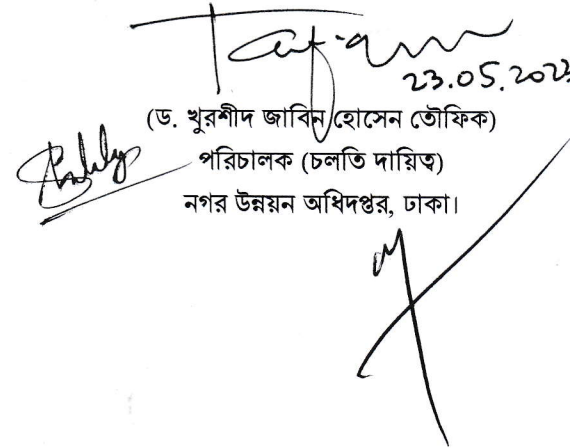 23.05.2023
(ড. খুরশীদ জাবিন হোসেন তৌফিক)
পরিচালক (চলতি দায়িত্ব)
নগর উন্নয়ন অধিদপ্তর, ঢাকা।